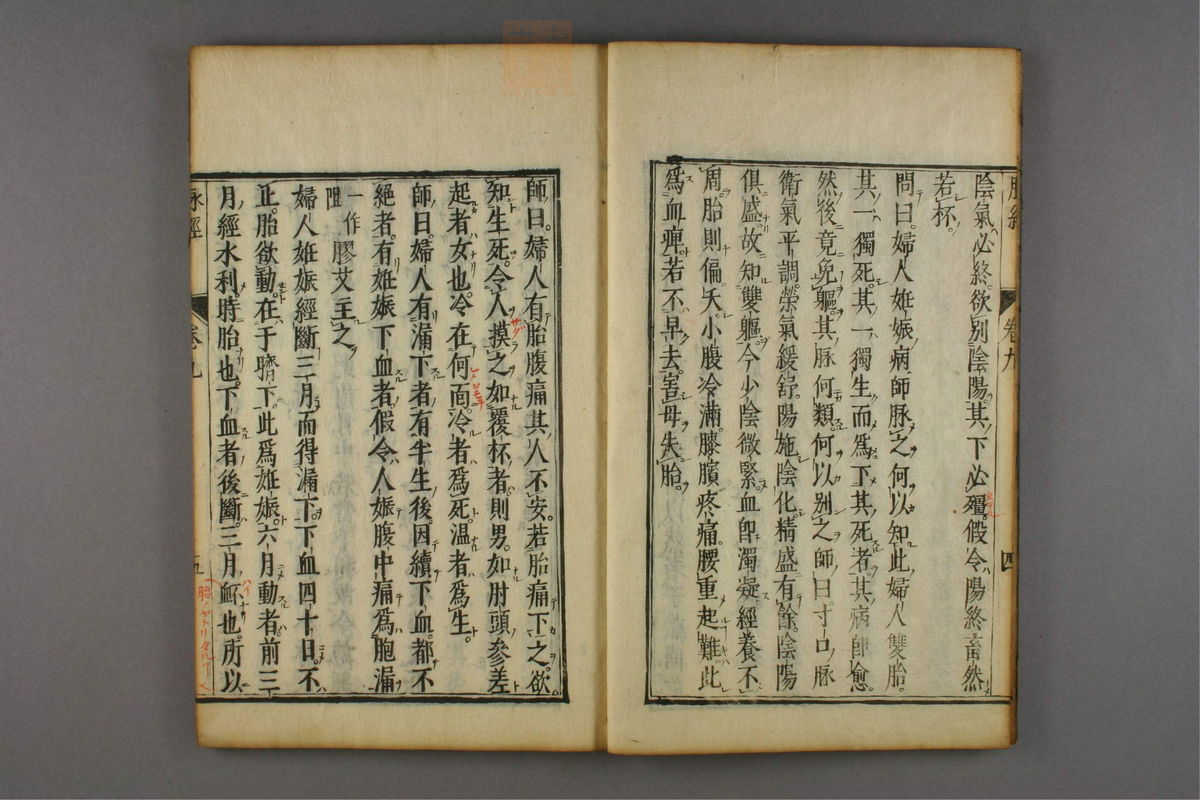 脉經 卷九 四
陰氣必終欲別陰陽其下必殭假令陽終畜然
若杯
問曰婦人姙娠病師脉之何以知此婦人雙胎
其一獨死其一獨生而爲下其死者其病卽愈
然後竟免軀其脉何類何以別之師曰寸口脉
衛氣平調榮氣緩舒陽施陰化精盛有餘陰陽
俱盛故知雙軀今少陰微緊血卽濁凝經養不
周胎則偏夭小腹冷滿膝臏疼痛腰重起難此
爲血痺若不早去害母失胎
師曰婦人有胎腹痛其人不安若胎痛下之欲
知生死令人摸之如覆杯者則男如肘頭參差
起者女也冷在何面冷者爲死温者爲生
師曰婦人有漏下者有半生後因續下血都不
絕者有姙娠下血者假令人娠腹中痛爲胞漏
一作阻膠艾主之
婦人姙娠經斷三月而得漏下下血四十日不
止胎欲動在于臍下此爲姙娠六月動者前三
月經水利時胎也下血者後斷三月衃也所以
脉經 卷九 五